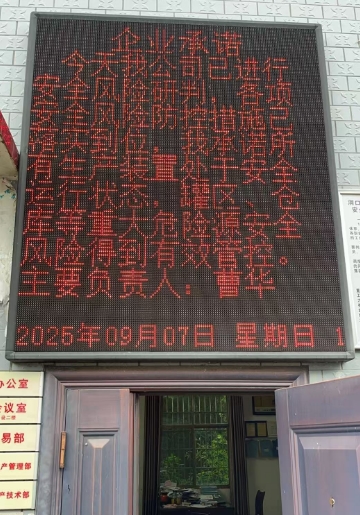 企业承诺
今天我司已进行
安全风险研判,各项
安全风险防控措施已
落实到位,我承诺所
有生产装置处于安全
运行状态,罐区、仓
库等重大危险源安全
风险得到有效管控。
主要负责人:曹华
2025年09月07日 星期日 1
办公室
会议室
易部
产管理部
产技术部